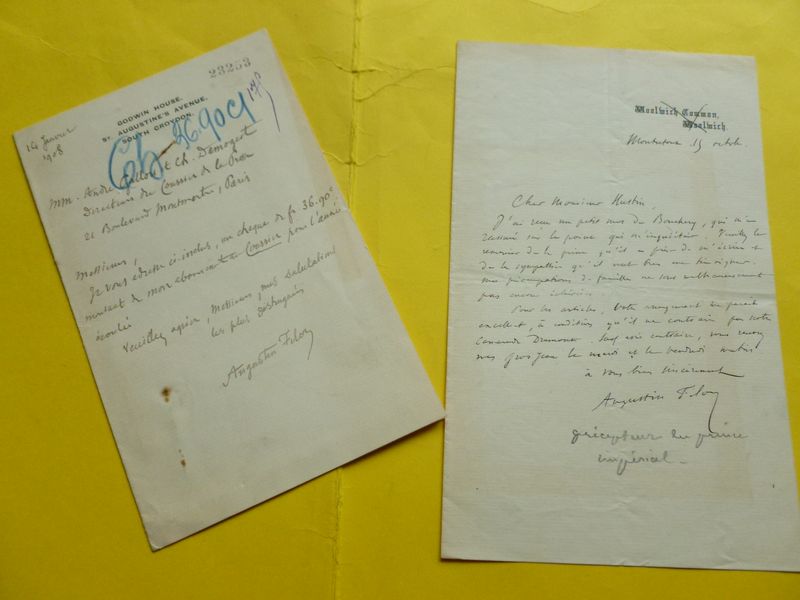 23253
GODWIN HOUSE,
ST AUGUSTINE'S AVENUE,
SOUTH CROYDON.
14 Janvier
1908
36.90
MM. André Gallois & Ch. Demogeot
Directeurs du Courrier de la Presse
21 Boulevard Montmartre, Paris
Messieurs,
Je vous adresse ci-inclus, un chèque de fr 36.90c
montant de mon abonnement au Courrier pour l'année
écoulée
Veuillez agréer, Messieurs, mes salutations
les plus distinguées
Augustin Filon
Woolwich Common,
Woolwich.
15 octob.
Cher Monsieur Hustin,
J'ai reçu un petit mot de Bouchery, qui m'a
rassuré sur le point qui m'inquiétait. Veuillez le
remercier de la peine qu'il a prise de m'écrire &
de la sympathie qu'il veut bien me témoigner.
Mes préoccupations de famille ne sont malheureusement
pas encore
Pour les articles, votre arrangement me paraît
excellent, à condition qu'il ne contrarie pas notre
camarade Sauf avis contraire,
le mardi et le vendredi matin
à vous bien sincèrement
Augustin Filon
précepteur du prince
impérial.